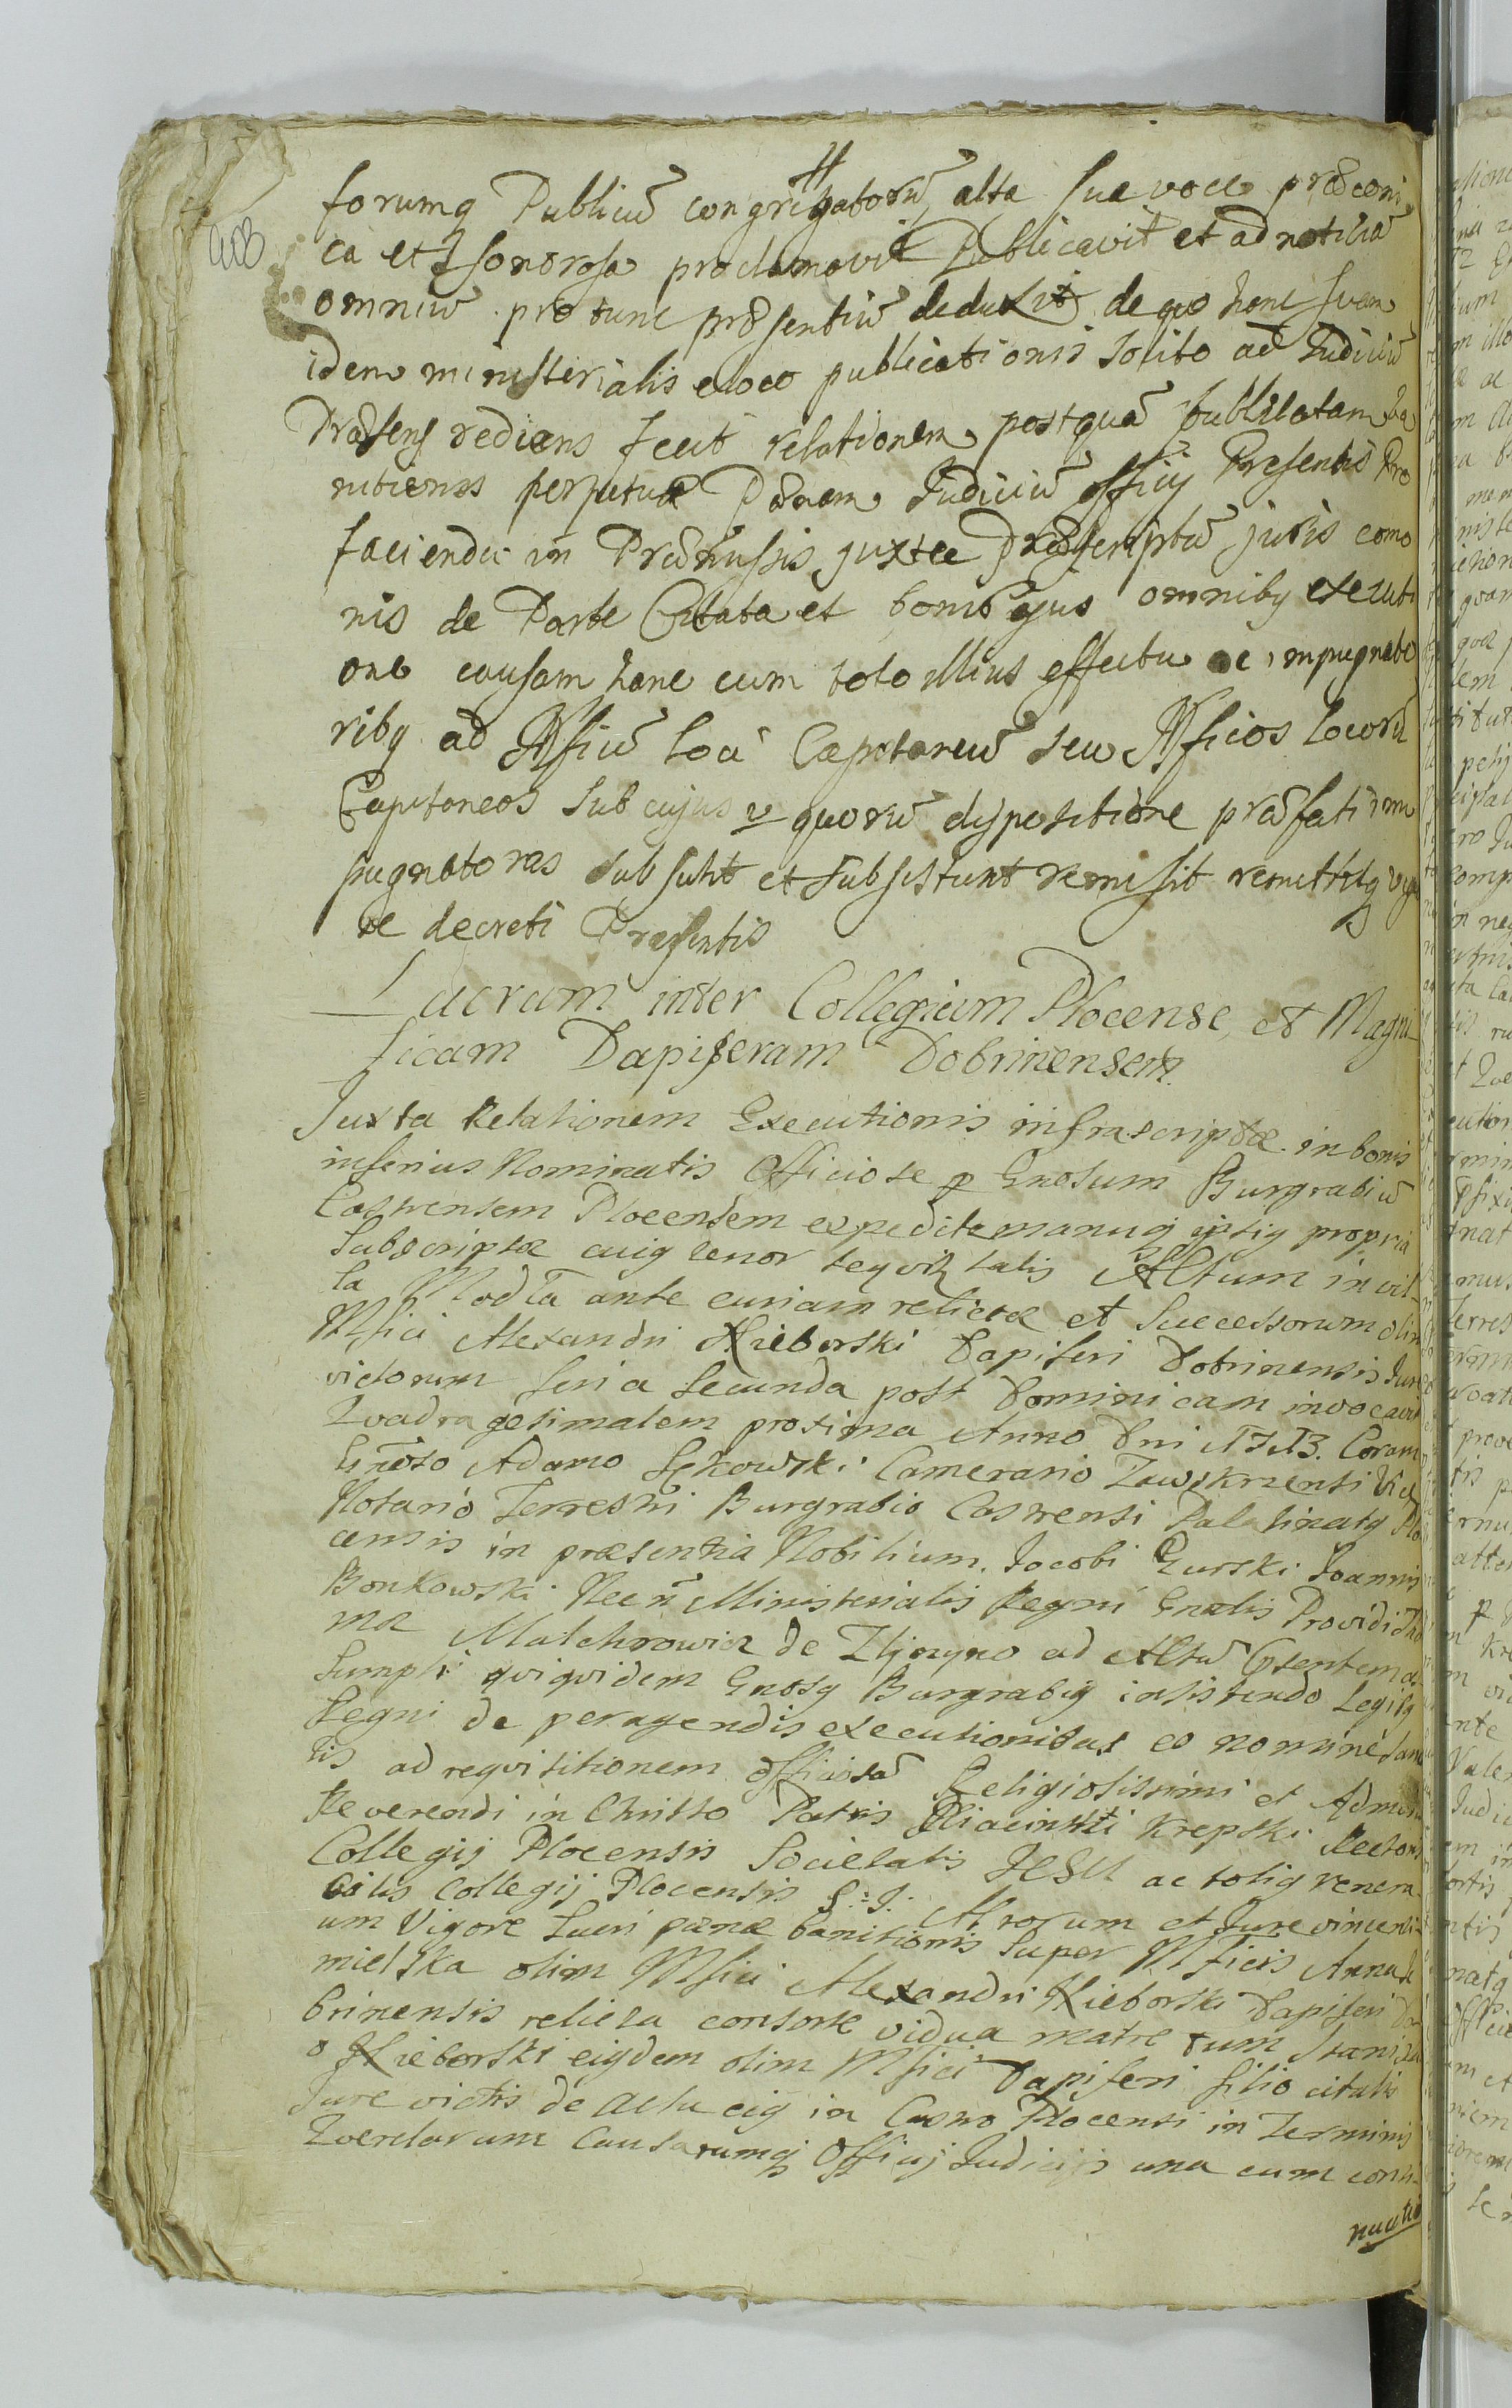 forumq Publicũ congregatorũ alta sua voce præconi
ca et Isonorosa proclamavit Publicavit et ad notitiã
omniũ pro tunc præsentiũ deduxit de quo hanc suam
idem ministerialis e loco publicationis solito ad Judiciũ
Præsens rediens fecit relationem postquã publicatam ba
nitionis perpetuæ Pænam Judiciũ officij Presentis Pro
facienda in Præmissis juxta Præscriptũ juris como
nis de Parte Citata et bonis ejus omnibq executi
one causam hanc cum toto illius effectu ac impugnato
ribq ad Mficũ loci Capitaneũ seu Mficos locorũ
Capitaneos sub cujus v quorũ dispositione præfati im
pugnatores subsunt et subsistunt remisit remittitq vigo
re decreti Præsentis
Lucrum inter Collegium Plocense, et Magni
ficam Dapiferam Dobrinensem.
Juxta Relationem Executionis infrascriptæ in bonis
inferius Nominatis Officiose p Gnosum Burgrabiũ
Castrensem Plocensem expeditæ manuq ipsiq propria
Subscriptæ cuiq tenor seqvitq talis Actum in vil
la Modła ante curiam relictæ et Successorum olim
Mfici Alexandri Nieborski Dapiferi Dobrinensis Jure
victorum feria Secunda post Dominicam invocavit
Qvadragesimalem proxima Anno Dni 1713. Coram
Gnõso Adamo Sękowski Camerario Zawskrzensi Vice
Notario Terrestri Burgrabio Castrensi Palatinatq Plo
censis in præsentia Nobilium Jacobi Gurski Joannis
Bonkowski Necñ Ministerialis Regni Gnalis Providi Tho
mæ Malchrowicz de ad Actũ Psentem as
Sumpti qviqvidem Gnosq Burgrabiq insistendo Legibq
Regni de peragendis executionibus eo nomine sanci
tis ad reqvisitionem officiosã Religiosissimi et Admodũ
Reverendi in Christo Patris Hiacinthi Krepski Rectoris
Collegij Plocensis Societatis JESU ac totiq venera
bilis Collegij Plocensis S: J: Actorum et Jure vincenti
um Vigore Lucri pænæ banitionis Super Mficis Anna de
mielska olim Mfici Alexandri Nieborski Dapiferi Do
brinensis relicta consorte vidua matre tum Stanisla
o Nieborski eiqdem olim Mfici Dapiferi filio citatis
Jure victis de Actu eiq in Castro Plocensi in Terminis
Qverelarum Causarumq Officij Judicijs una cum conti
nuatio